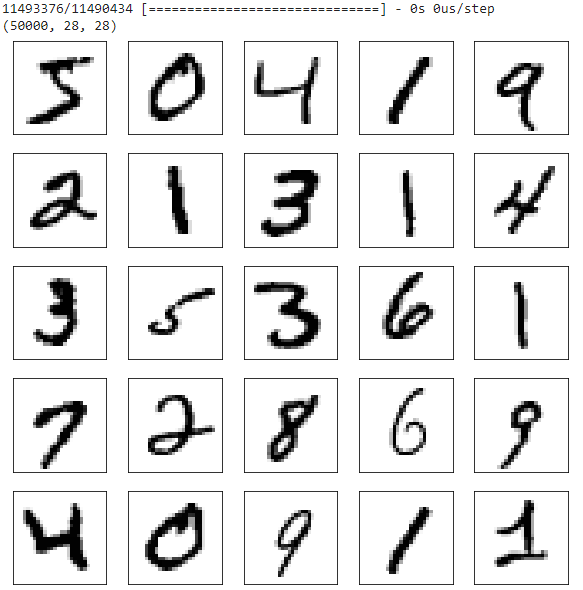 11493376/11490434 [==============================] - 0s 0us/step
(50000, 28, 28)
5 0 4 1 9
2 1 3 1 4
3 5 3 6 1
7 2 8 6 9
4 0 9 1 1